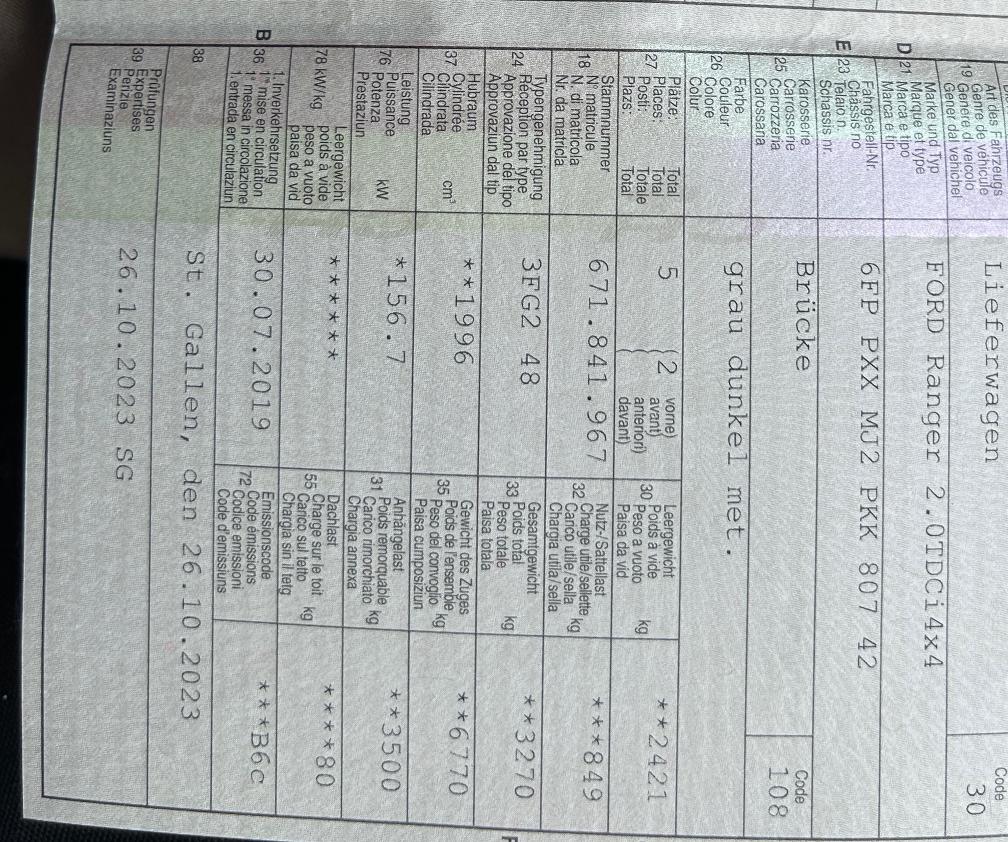 Art des Fahrzeugs
19 Genre de véhicule
Genere di veicolo
Gener da vehichel
Lieferwagen
Code
30
Marke und Typ
D 21 Marque et type
Marca e tipo
Marca e tip
FORD Ranger 2.0TDCi4x4
Fahrgestell-Nr.
E 23 Châssis no
Telaio n.
Schassis nr.
6FP PXX MJ2 PKK 807 42
Karosserie
25 Carrosserie
Carrozzeria
Carossaria
Brücke
Code
108
Farbe
26 Couleur
Colore
Colur
grau dunkel met.
Plätze: Total
27 Places: Total
Posti: Totale
Plazs: Total
5
(2 vorne)
avant)
( anteriori)
( davant)
Leergewicht
30 Poids à vide
Peso a vuoto kg
Paisa da vid
**2421
Stammnummer
18 N° matricule
N. di matricola
Nr. da matricla
671.841.967
Nutz-/Sattellast
32 Charge utile/sellette
Carico utile/sella kg
Chargia utila/sella
***849
Typengenehmigung
24 Réception par type
Approvazione del tipo
Approvaziun dal tip
3FG2 48
Gesamtgewicht
33 Poids total
Peso totale kg
Paisa totala
**3270
Hubraum
37 Cylindrée
Cilindrata cm³
Cilindrada
**1996
Gewicht des Zuges
35 Poids de l'ensemble
Peso del convoglio kg
Paisa cumposiziun
**6770
Leistung
76 Puissance
Potenza kW
Prestaziun
*156.7
Anhängelast
31 Poids remorquable
Carico rimorchiato kg
Chargia annexa
**3500
Leergewicht
78 kW/kg poids à vide
peso a vuoto
paisa da vid
*****
Dachlast
55 Charge sur le toit
Carico sul tetto kg
Chargia sin il tetg
****80
1. Inverkehrsetzung
B 36 1re mise en circulation
1a messa in circolazione
1. entrada en circulaziun
30.07.2019
Emissionscode
72 Code émissions
Codice emissioni
Code d'emissiuns
***B6c
38
St. Gallen, den 26.10.2023
Prüfungen
39 Expertises
Perizie
Examinaziuns
26.10.2023 SG